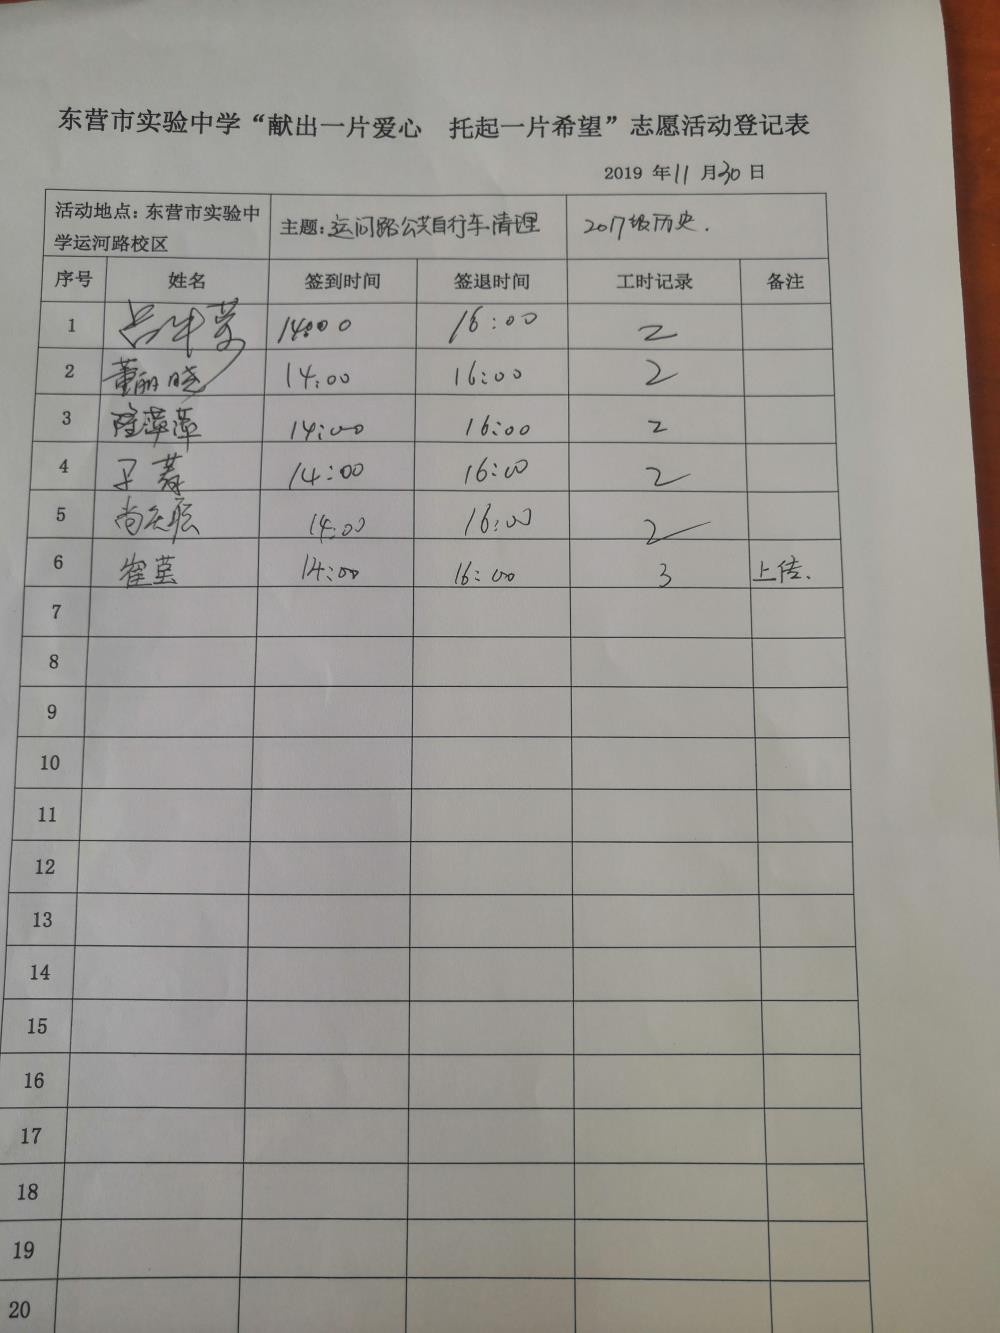 东营市实验中学“献出一片爱心 托起一片希望”志愿活动登记表
2019 年 11 月 30 日
活动地点：东营市实验中
学运河路校区
主题：运河路公共自行车清理
2017级历史.
序号 姓名 签到时间 签退时间 工时记录 备注
1 14:00 16:00 2
2 董丽晓 14:00 16:00 2
3 隆萍萍 14:00 16:00 2
4 14:00 16:00 2
5 尚 14:00 16:00 2
6 崔莹 14:00 16:00 3 上传.
7
8
9
10
11
12
13
14
15
16
17
18
19
20